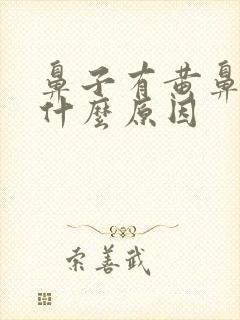 鼻子有黄鼻
什麼原因
索善武